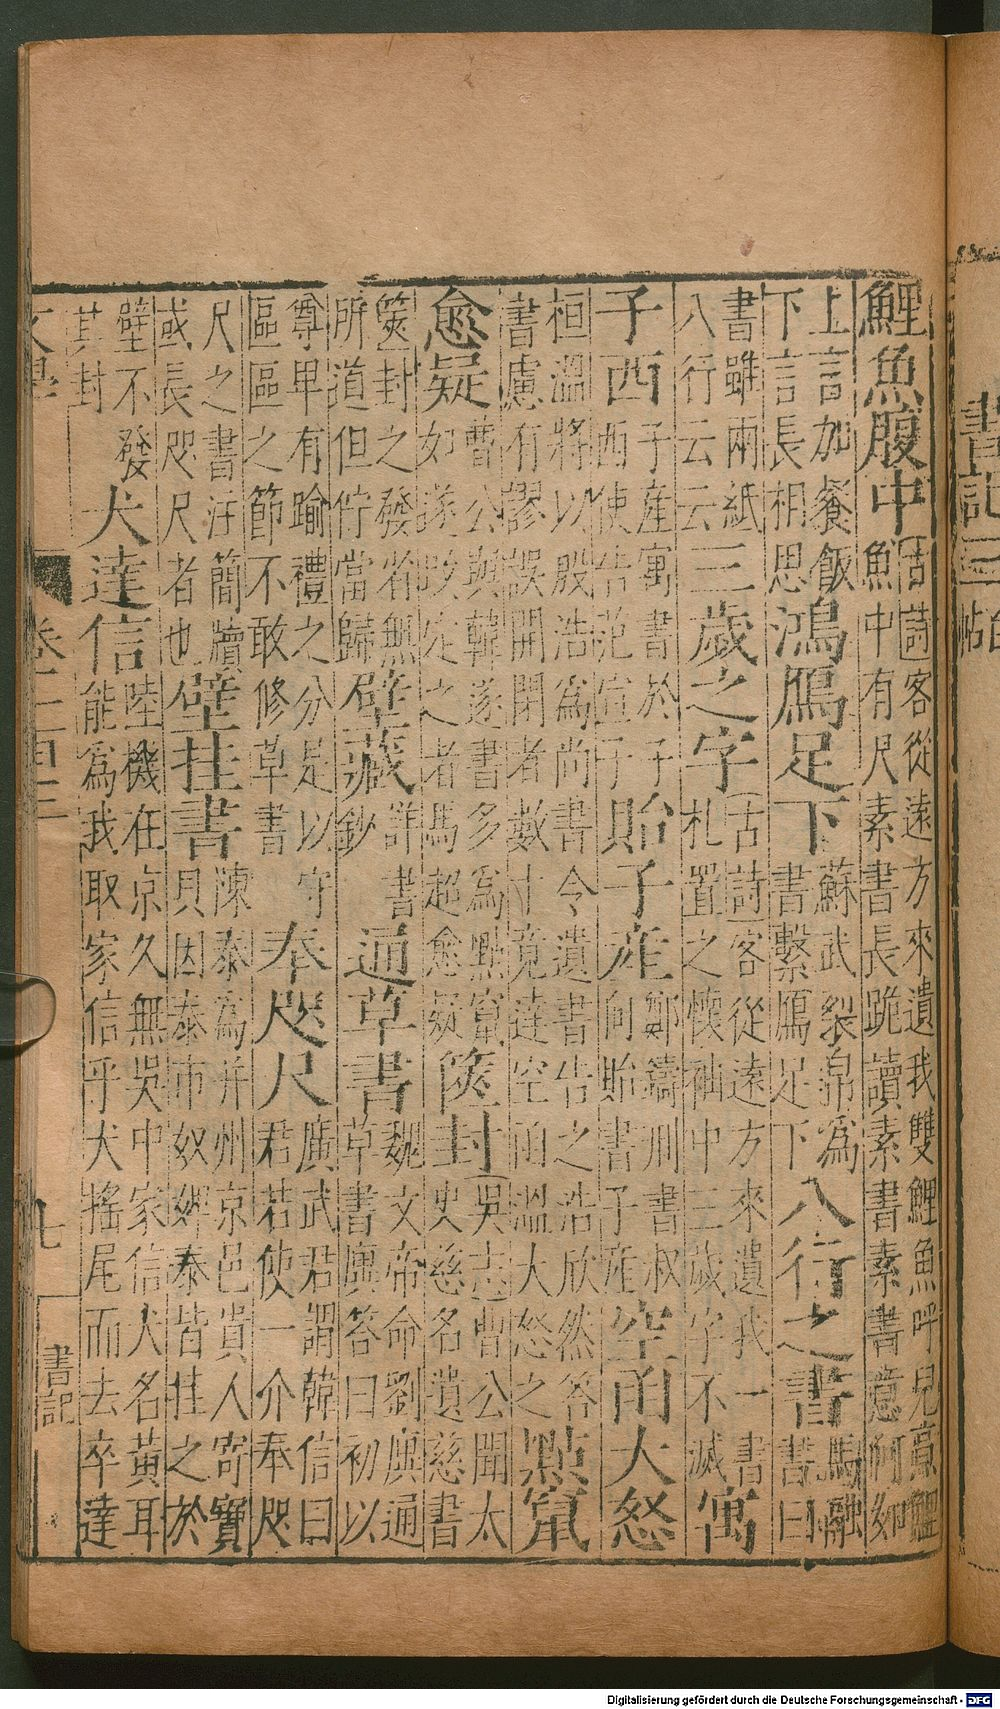 鯉魚腹中
古詩客從遠方來遺我雙鯉魚呼兒烹鯉
魚中有尺素書長跪讀素書素書意何如
上言加餐飯
下言長相思
鴻鴈足下
蘇武裂帛為
書繫鴈足下
八行之書
馬融
書曰
書雖兩紙
八行云云
三歲之字
古詩客從遠方來遺我一書
札置之懷袖中三歲字不滅
寓
子西
子產寓書於子
西使告范宣子
貽子產
鄭鑄刑書叔
向貽書子產
空函大怒
桓溫將以殷浩為尚書令遺書告之浩欣然答
書慮有謬誤開閉者數十竟達空函溫大怒之
點竄
愈疑
曹公與韓遂書多為點竄
如遂改定之者馬超愈疑
篋封
吳志曹公聞太
史慈名遺慈書
篋封之發省無
所道但佇當歸
壁藏
詳書
鈔
通草書
魏文帝命劉廙通
草書廙答曰初以
尊卑有踰禮之分是以守
區區之節不敢修草書
奉咫尺
廣武君謂韓信曰
君若使一介奉咫
尺之書注簡牘
或長咫尺者也
壁挂書
陳泰為并州京邑貴人寄寶
貝因泰市奴婢泰皆挂之於
壁不發
其封
犬達信
陸機在京久無吳中家信犬名黃耳
能為我取家信乎犬搖尾而去卒達
文學
書記
Digitalisierung gefördert durch die Deutsche Forschungsgemeinschaft - DFG